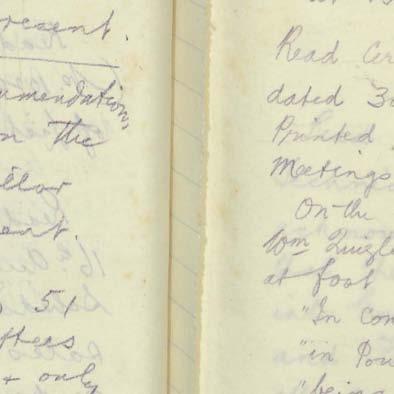 resent.
mmendations
n the
llor
ent.
51
ttees
+ only
Read Cer
dated 30
Printed
Meetings
On the
Wm Quigle
at foot
"In con
"in Pou
"being